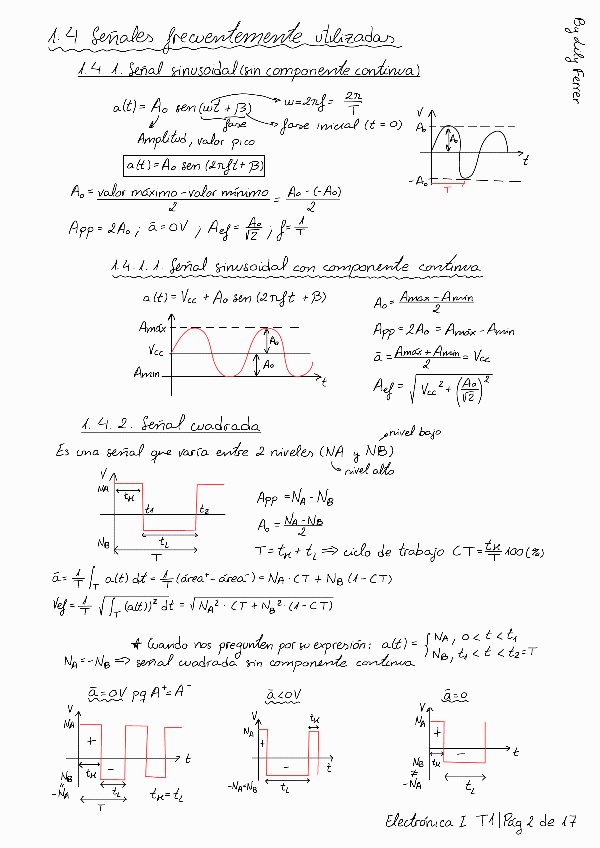 By Luly Ferrer
1.4 Señales frecuentemente utilizadas
1.4.1. Señal sinusoidal (sin componente continua)
a(t) = A₀ sen(ωt + β) → ω = 2πf = 2π/T
fase → fase inicial (t = 0)
Amplitud, valor pico
a(t) = A₀ sen(2πft + β)
V A₀ A₀ t -A₀ T
A₀ = valor máximo - valor mínimo / 2 = A₀ - (-A₀) / 2
App = 2A₀ ; ā = 0V ; Aef = A₀/√2 ; f = 1/T
1.4.1.1. Señal sinusoidal con componente continua
a(t) = Vcc + A₀ sen(2πft + β)
A₀ = Amáx - Amín / 2
App = 2A₀ = Amáx - Amín
ā = Amáx + Amín / 2 = Vcc
Aef = √(Vcc² + (A₀/√2)²)
Amáx
Vcc A₀
Amín A₀ t
1.4.2. Señal cuadrada
nivel bajo
Es una señal que varía entre 2 niveles (NA y NB)
nivel alto
V NA tH t1 t2 NB tL T
App = NA - NB
A₀ = NA - NB / 2
T = tH + tL ⇒ ciclo de trabajo CT = tH/T 100 (%)
ā = 1/T ∫T a(t) dt = 1/T (área⁺ - área⁻) = NA · CT + NB (1 - CT)
Vef = 1/T √∫T (a(t))² dt = √NA² · CT + NB² · (1 - CT)
* Cuando nos pregunten por su expresión: a(t) = { NA, 0 < t < t1
NB, t1 < t < t2 = T
NA = -NB ⇒ señal cuadrada sin componente continua
ā = 0V pq A⁺ = A⁻
V NA + tH - t NB = -NA tL T tH = tL
ā < 0V
V NA tH + - t -NA=NB tL
ā = 0
V NA + - t NB ≠ -NA tH tL
Electrónica I T1 | Pág 2 de 17